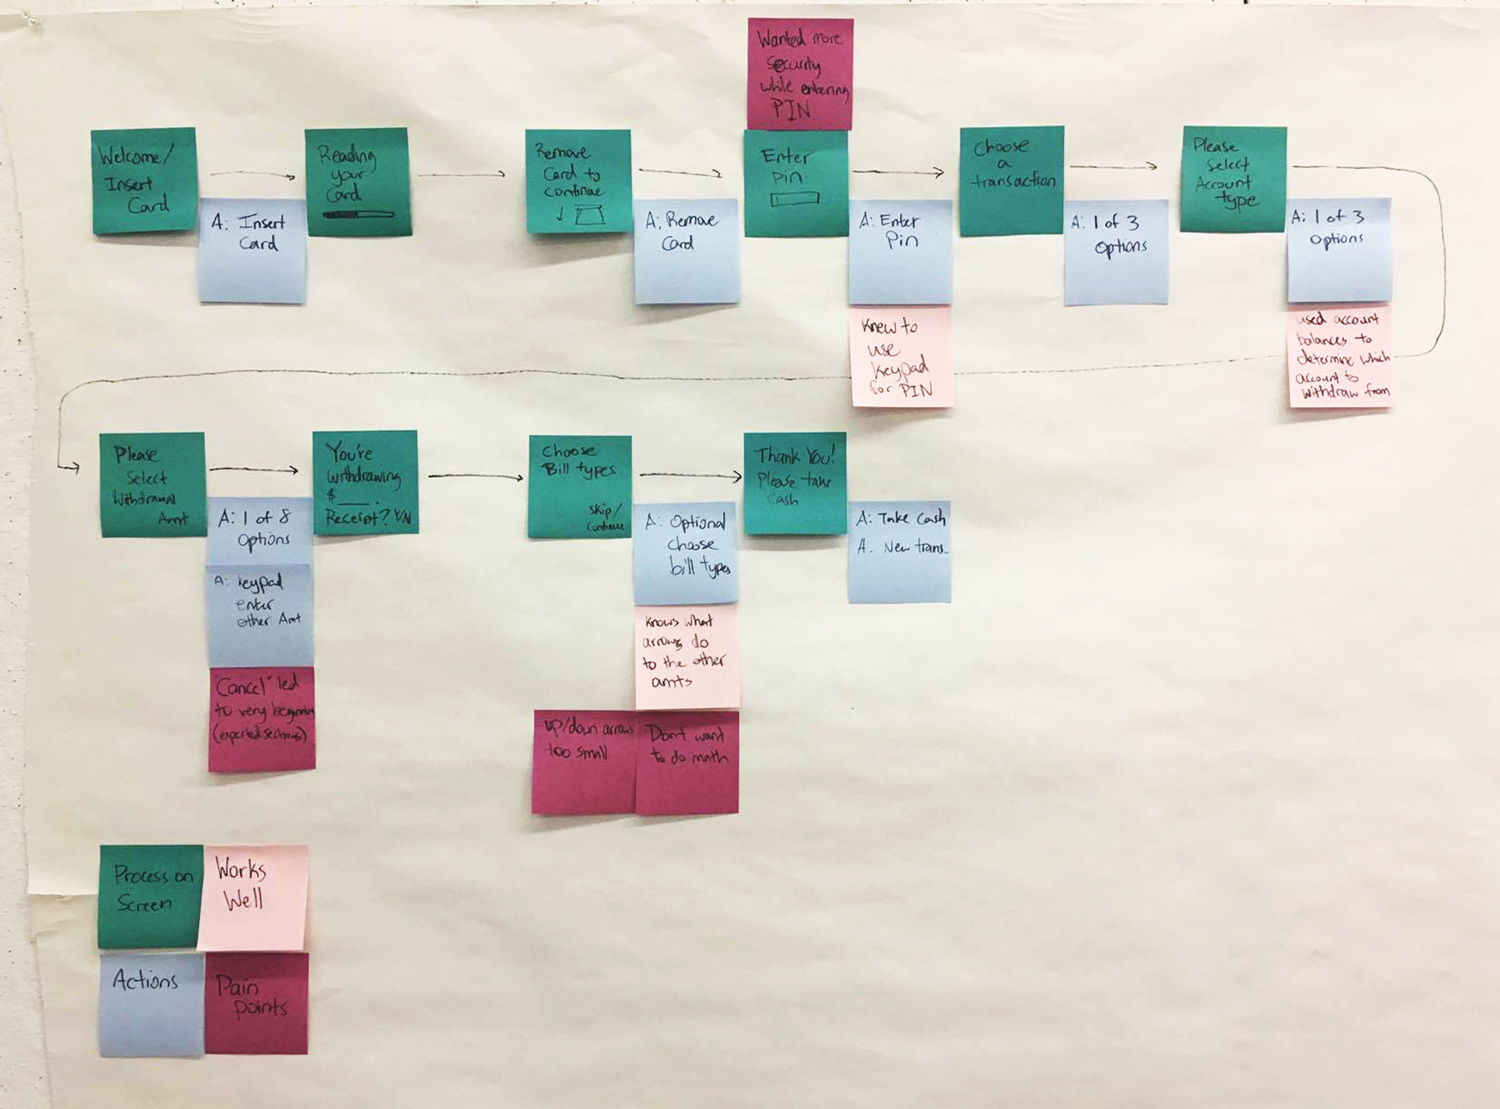 Wanted more
security
while entering
PIN
Welcome/
Insert
Card
A: Insert
Card
Reading
your
Card
Remove
Card to
continue
A: Remove
Card
Enter
Pin
A: Enter
Pin
Knew to
use
keypad
for PIN
Choose
a
transaction
A: 1 of 3
Options
Please
Select
Account
type
A: 1 of 3
Options
used account
balances to
determine which
account to
withdraw from
Please
Select
Withdrawal
Amt
A: 1 of 8
Options
A: Keypad
enter
other Amt
"Cancel" led
to very beginning
(expected sections)
You're
Withdrawing
$ ____.
Receipt? Y/N
Choose
Bill types
skip/
Continue
A: Optional
choose
bill types
Knows what
arrows do
to the other
amts
up/down arrows
too small
Don't want
to do math
Thank You!
Please take
Cash
A: Take Cash
A. New trans.
Process on
Screen
Works
Well
Actions
Pain
points